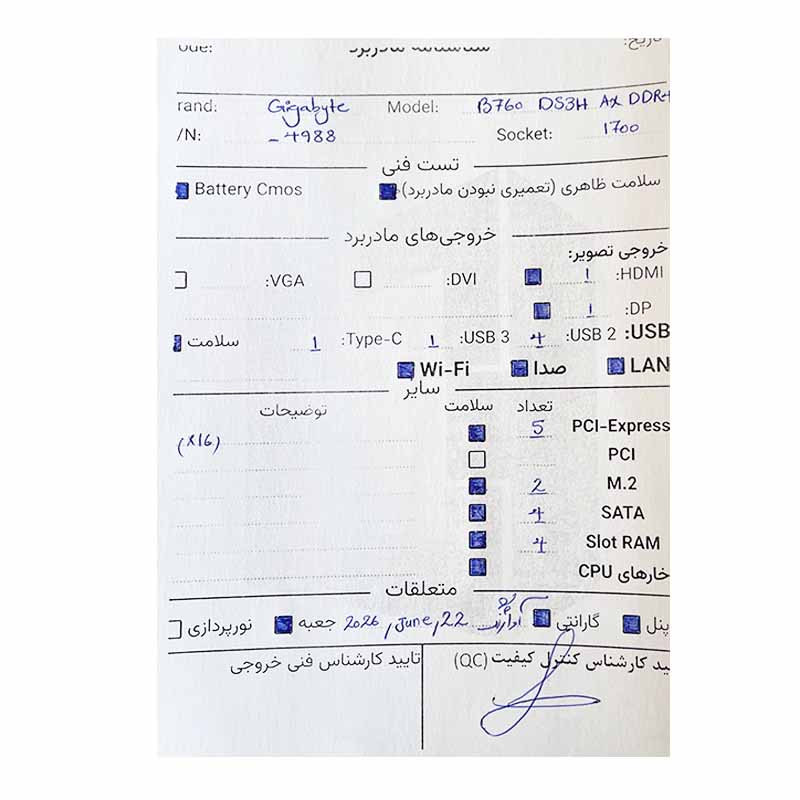 شناسنامه مادربرد
تاریخ:
rand: Gigabyte Model: B760 DS3H AX DDR4
/N: -4988 Socket: 1700
تست فنی
سلامت ظاهری (تعمیری نبودن مادربرد) Battery Cmos
خروجی‌های مادربرد
خروجی تصویر:
HDMI: 1 DVI: VGA:
DP: 1
USB: USB 2: 4 USB 3: 1 Type-C: 1 سلامت
LAN صدا Wi-Fi
سایر
تعداد سلامت توضیحات
PCI-Express 5 (x16)
PCI
M.2 2
SATA 4
Slot RAM 4
خارهای CPU
متعلقات
پنل گارانتی آواژنگ 2026, June, 22 جعبه نورپردازی
ید کارشناس کنترل کیفیت (QC) تایید کارشناس فنی خروجی